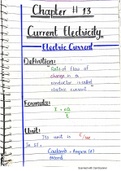 Chapter # 13
Current Electricity
Electric Current
Definition:
"Rate of flow of
change in a
conductor is called
electric current"
Formula:
Unit:
Its unit is
Coulomb = Ampere (A)
Second